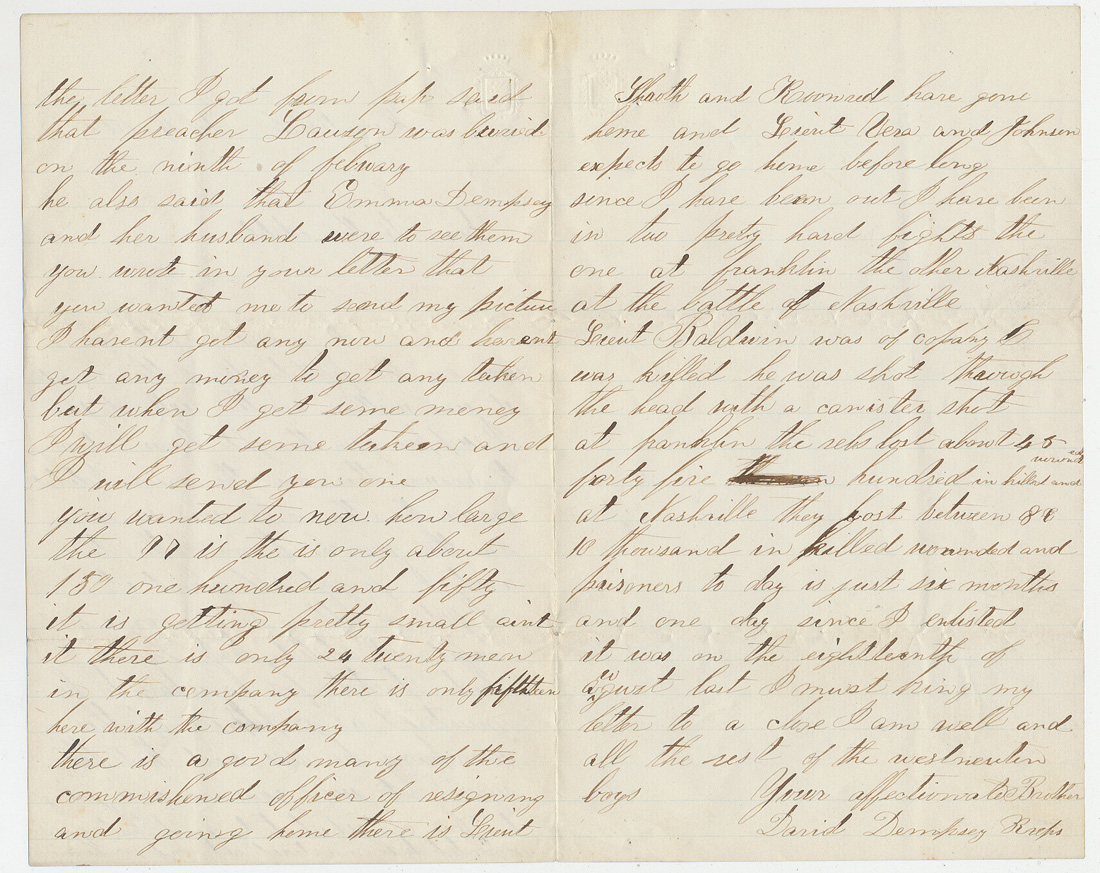 the letter I got from pap said
that preacher Lauzon was buried
on the ninth of febuary
he also said that Emma Dempsey
and her husband were to see them
you wrote in your letter that
you wanted me to send my picture
I havent got any now and havent
got any money to get any taken
but when I get some money
I will get some taken and
I will send you one
you wanted to now how large
the 97 is the is only about
150 one hundred and fifty
it is getting pretty small aint
it there is only 24 twenty men
in the company there is only fifthteen
here with the company
there is a good many of the
commishened officer of resigning
and going home there is Lieut
and have gone
home and Lieut Vera and Johnson
expects to go home before long
since I have been out I have been
in two pretty hard fights the
one at franklin the other Nashville
at the battle of Nashville
Lieut Baldwin was of copany
was killed he was shot through
the head with a canister shot
at franklin the rebs lost about 45
forty five hundred in killed and wounded
at Nashville they lost between 8
10 thousand in killed wounded and
prisoners to day is just six months
and one day since I enlisted
it was on the eighteenth of
august last I must bring my
letter to a close I am well and
all the rest of the westnewton
boys Your affectionate Brother
David Dempsey Rhops